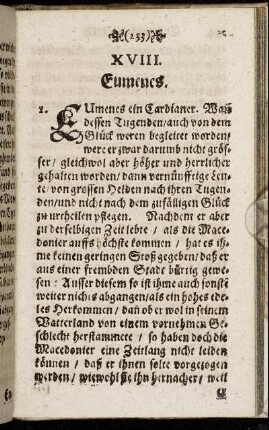 (233)
XVIII.
Eumenes.
1. EUmenes ein Cardianer. Wañ
dessen Tugenden/auch von dem
Glück weren begleitet worden/
were er zwar darumb nicht grös-
ser/gleichwol aber höher und herrlicher
gehalten worden/dann vernünfftige Leu-
te/von grossen Helden nach ihren Tugen-
den/und nicht nach dem zufälligen Glück
zu urtheilen pflegen. Nachdem er aber
zu derselbigen Zeit lebte / als die Mace-
donier auffs höchste kommen / hat es ih-
me keinen geringen Stoß gegeben/daß er
aus einer frembden Stadt bürtig gewe-
sen: Ausser diesem so ist ihme auch sonst
weiter nichts abgangen/als ein hohes ede-
les Herkommen / dañ ob er wol in seinem
Vatterland von einem vornehmen Ge-
schlecht herstammete / so haben doch die
Macedonier eine Zeitlang nicht leiden
können / daß er ihnen solte vorgezogen
werden / wiewohl sie ihn hernacher/ weil